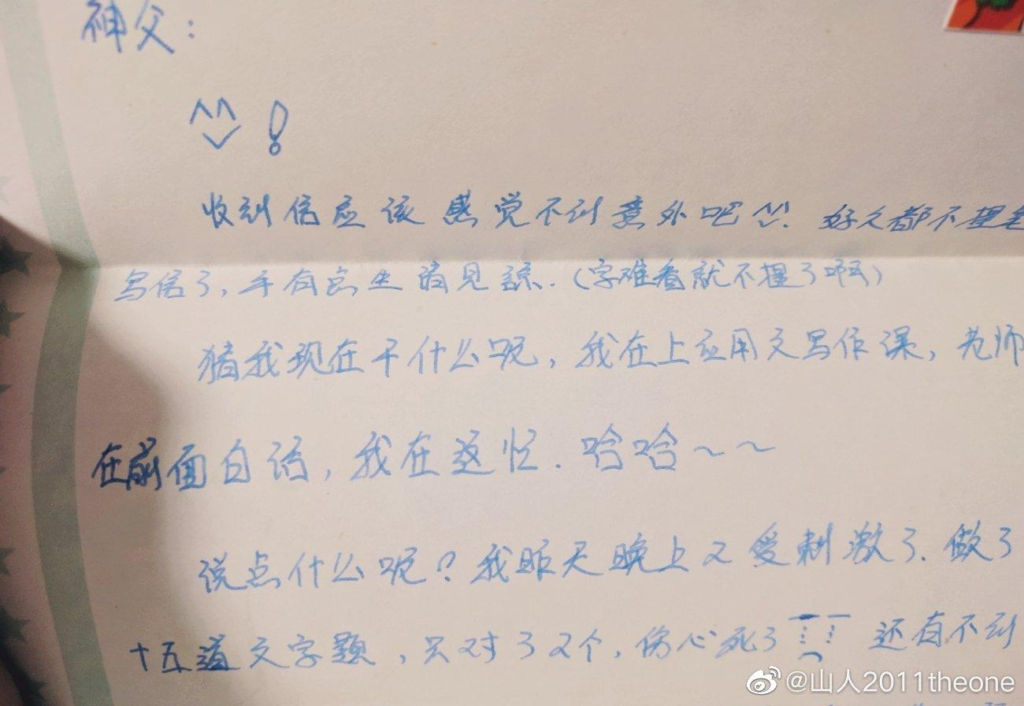 神父:
^^ !
收到信应该感觉不到意外吧^^. 好久都不提笔
写信了,手有点生请见谅.(字难看就不提了啊)
猜我现在干什么呢,我在上应用文写作课,老师
在前面白话,我在这忙.哈哈~~
说点什么呢?我昨天晚上又受刺激了.做了
十五道文字题,只对了2个,伤心死了 还有不到
@山人2011theone